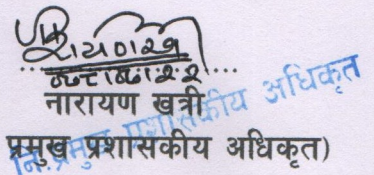 नारायण खत्री
प्रमुख प्रशासकीय अधिकृत)
नि.प्रमुख प्रशासकीय अधिकृत